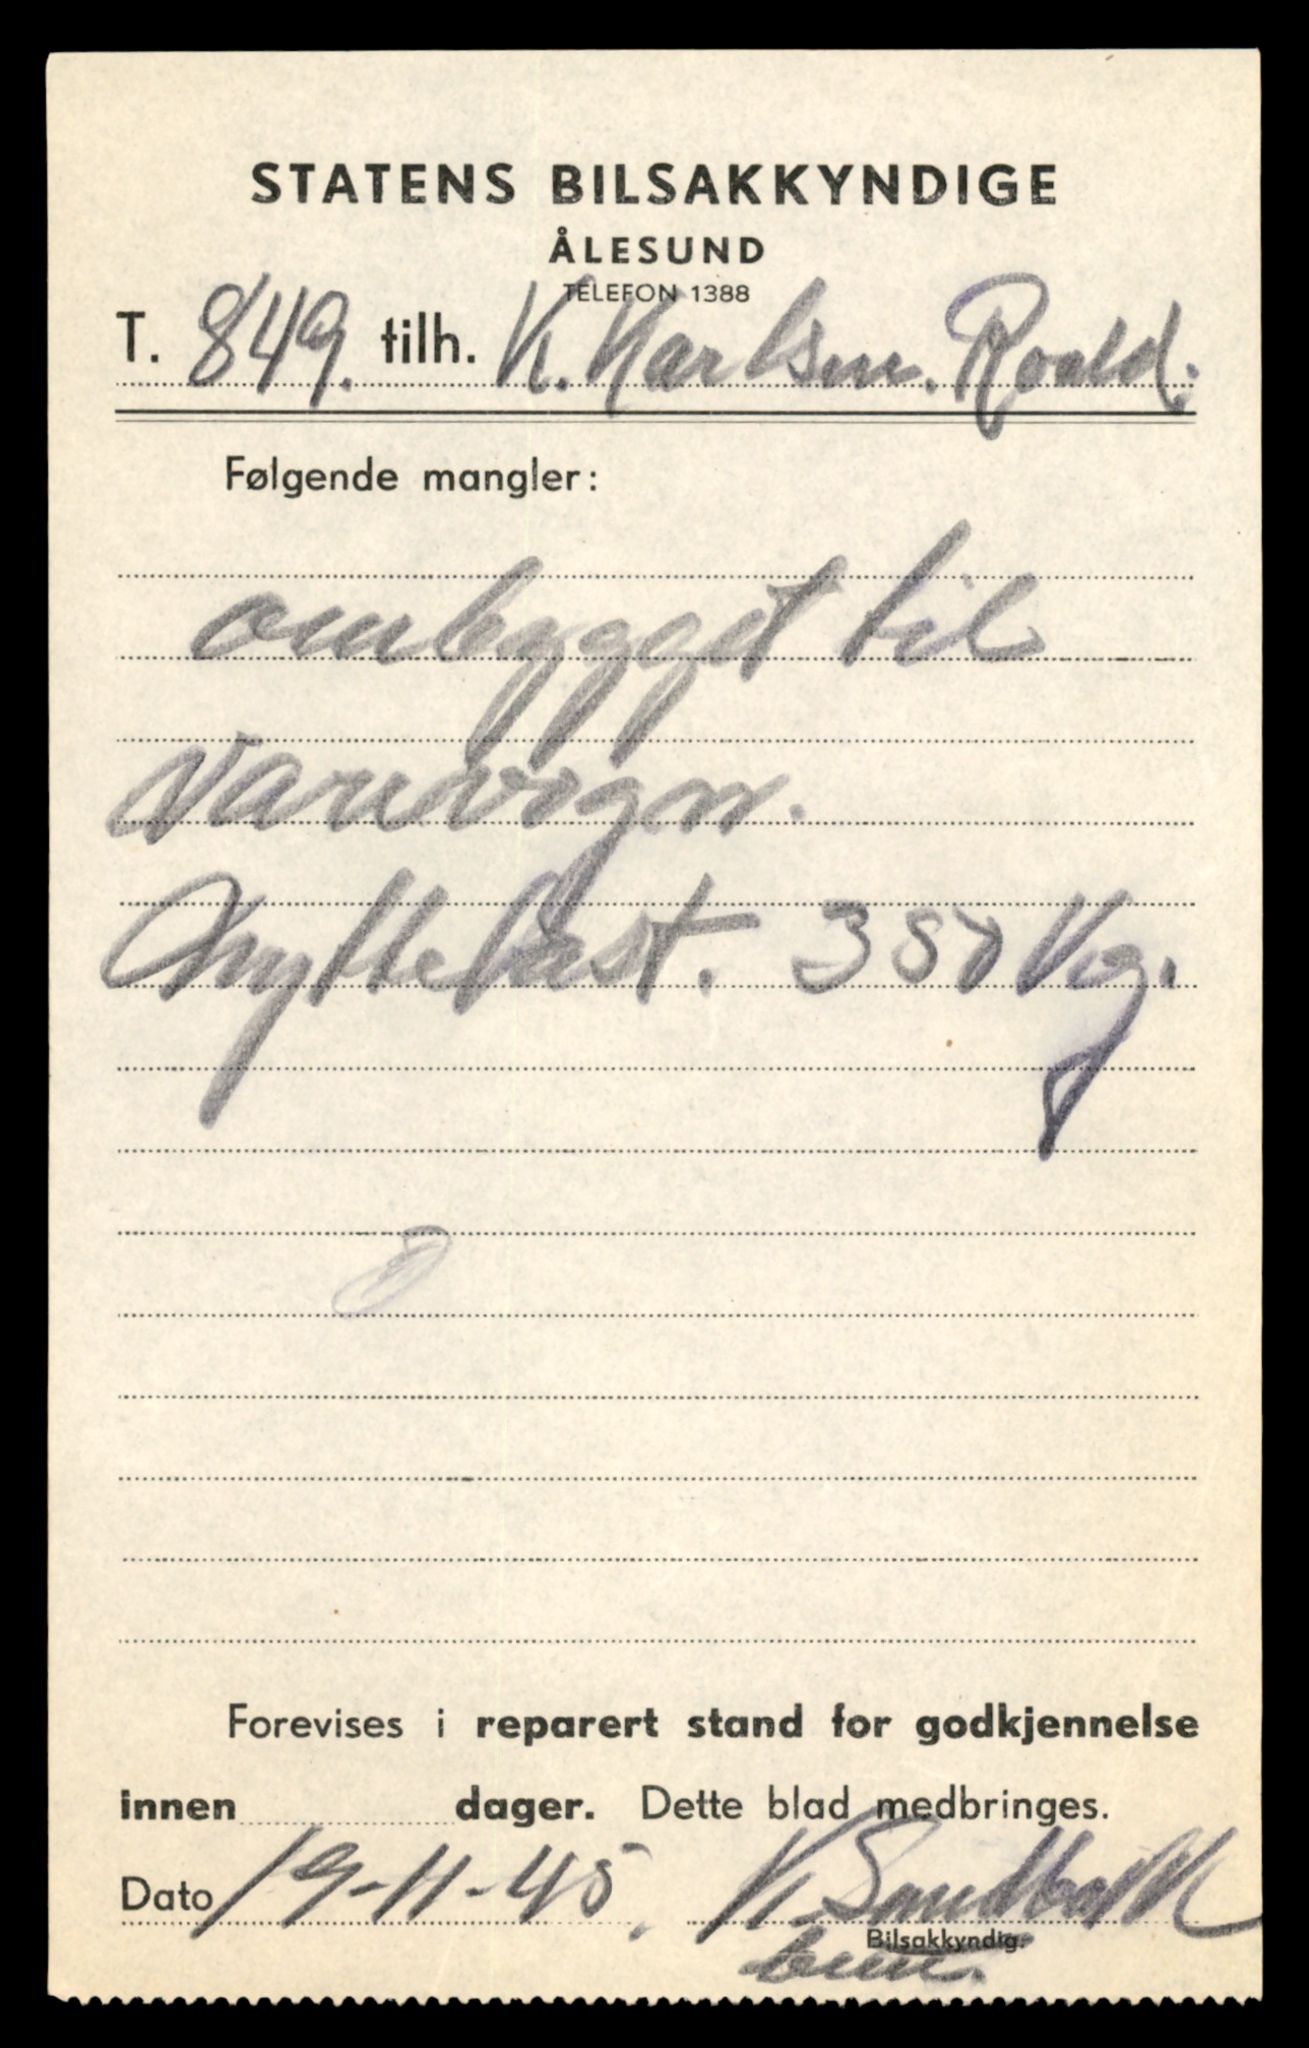 STATENS BILSAKKYNDIGE
ÅLESUND
TELEFON 1388
T. 849. tilh. K. Karlsen. Roald.
Følgende mangler:
ombygget til
varevogn.
Nyttelast. 350 Kg.
Forevises i reparert stand for godkjennelse
innen dager. Dette blad medbringes.
Dato 19-11-45. K. Sandbakk
Bilsakkyndig.